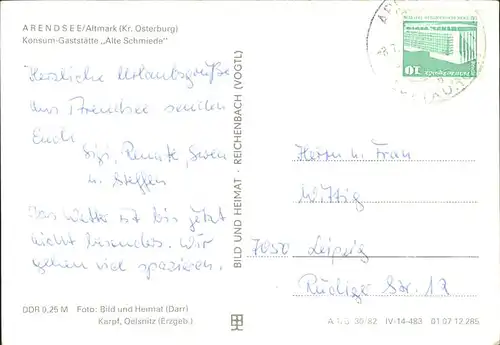 ARENDSEE/Altmark (Kr. Osterburg)
Konsum-Gaststätte „Alte Schmiede"
Herzliche Urlaubsgrüße
aus Arendsee senden
Euch
Sigi, Renate, Sven
u. Steffen
Das Wetter ist bis jetzt
nicht besonders. Wir
gehen viel spazieren.
DDR 0,25 M Foto: Bild und Heimat (Darr)
Karpf, Oelsnitz (Erzgeb.)
BILD UND HEIMAT · REICHENBACH (VOGTL)
10
Herrn u. Frau
Wittig
7050 Leipzig
Rüdiger Str. 12
A 1/B 30/82 IV-14-483 01 07 12 285